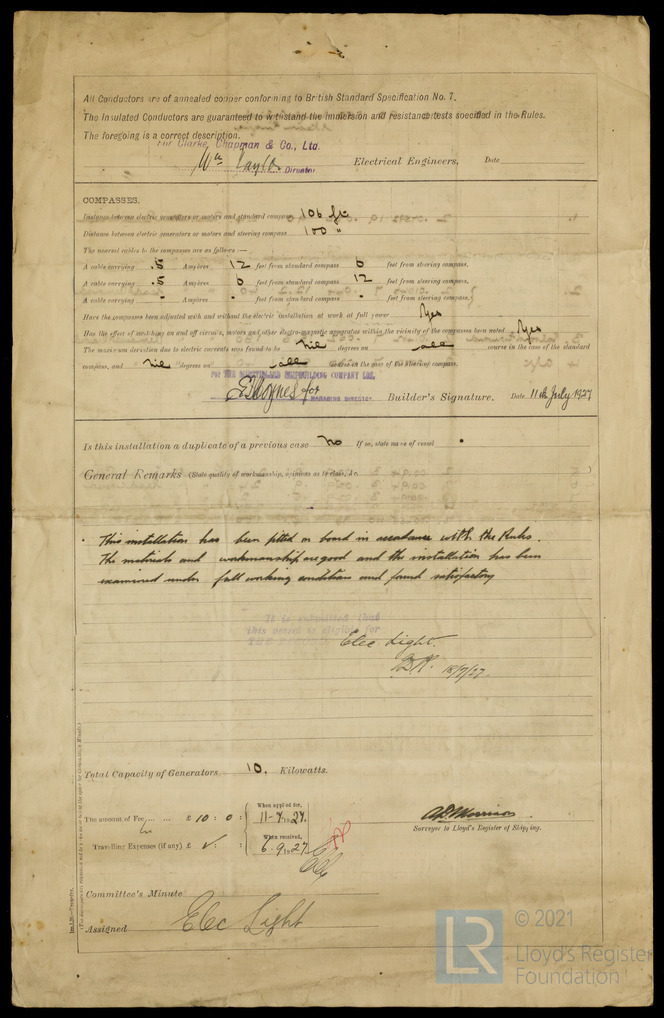 All Conductors are of annealed copper conforming to British Standard Specification No. 7.
The Insulated Conductors are guaranteed to withstand the immersion and resistance tests specified in the Rules.
The foregoing is a correct description.
For Clarke, Chapman & Co., Ltd.
Wm Taylor Director Electrical Engineers, Date
COMPASSES.
Distance between electric generators or motors and standard compass 106 ft
Distance between electric generators or motors and steering compass 100 "
The nearest cables to the compasses are as follows:—
A cable carrying .5 Ampères 12 feet from standard compass 6 feet from steering compass.
A cable carrying .5 Ampères 6 feet from standard compass 12 feet from steering compass.
A cable carrying " Ampères feet from standard compass feet from steering compass.
Have the compasses been adjusted with and without the electric installation at work at full power Yes
Has the effect of switching on and off circuits, motors and other electro-magnetic apparatus within the vicinity of the compasses been noted Yes
The maximum deviation due to electric currents was found to be nil degrees on all course in the case of the standard
compass, and nil degrees on all course in the case of the steering compass.
For THE SHIPBUILDING COMPANY LTD.
for MANAGING DIRECTOR Builder's Signature. Date 11th July 1927
Is this installation a duplicate of a previous case no If so, state name of vessel
General Remarks (State quality of workmanship, opinions as to class, &c. )
This installation has been fitted on board in accordance with the Rules.
The materials and workmanship are good and the installation has been
examined under full working conditions and found satisfactory
It is submitted that
this vessel is eligible for
THE RECORD Elec Light.
18/7/27
Total Capacity of Generators 10. Kilowatts.
The amount of Fee ... ... £ 10 : 0 : When applied for, 11-7-1927.
Travelling Expenses (if any) £ : : When received, 6.9.1927
Surveyor to Lloyd's Register of Shipping.
Committee's Minute
Assigned Elec Light
LR © 2021
Lloyd's Register
Foundation